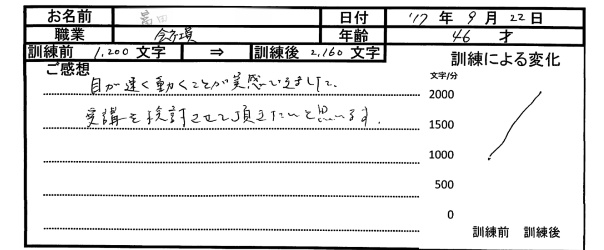 お名前 日付 '17 年 9 月 22 日
職業 会社員 年齢 46 才
訓練前 1,200 文字 ⇒ 訓練後 2,160 文字
訓練による変化
ご感想
文字/分
目が速く動くことが実感できました。
受講を検討させて頂きたいと思います。
2000
1500
1000
500
0
訓練前 訓練後